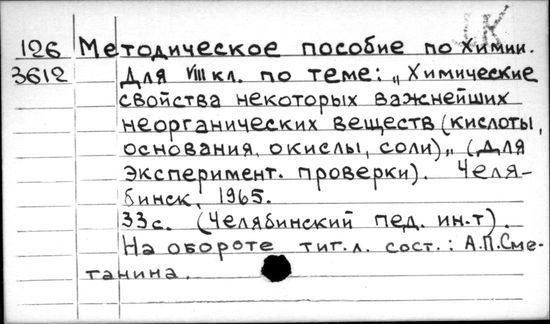 126 Методическое пособие по химии.
3612 Для VIII кл. по теме: „Химические
свойства некоторых важнейших
неорганических веществ (кислоты,
основания, окислы, соли)„ (для
эксперимент. проверки). Челя-
бинск, 1965.
33с. (Челябинский пед. ин-т).
На обороте тит.л. сост.: А.П.Сме-
танина.